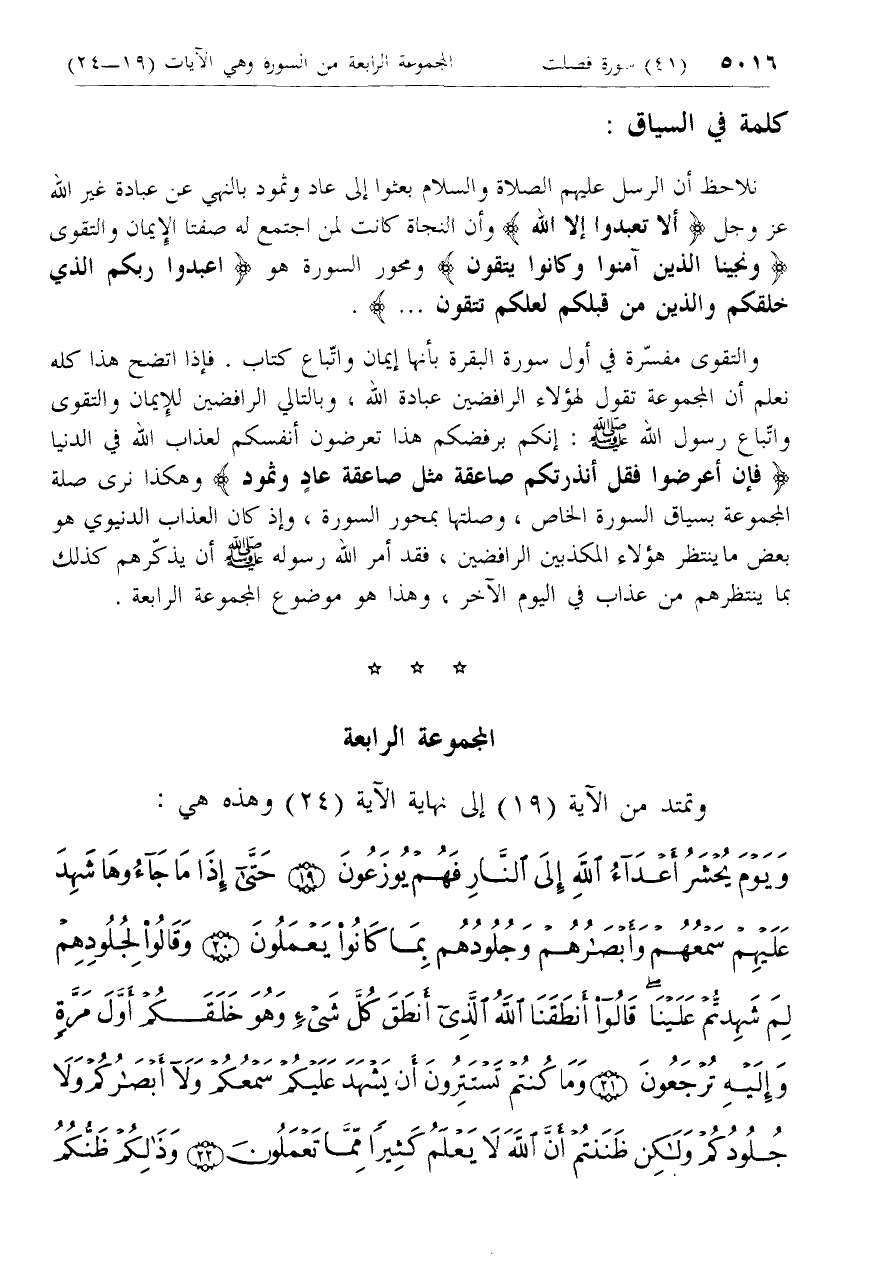 ٥٠١٦ (٤١) سورة فصلت المجموعة الرابعة من السورة وهي الآيات (١٩—٢٤)
كلمة في السياق :
نلاحظ أن الرسل عليهم الصلاة والسلام بعثوا إلى عاد وثمود بالنهي عن عبادة غير الله
عز وجل ﴿ ألا تعبدوا إلا الله ﴾ وأن النجاة كانت لمن اجتمع له صفتا الإيمان والتقوى
﴿ ونجينا الذين آمنوا وكانوا يتقون ﴾ ومحور السورة هو ﴿ اعبدوا ربكم الذي
خلقكم والذين من قبلكم لعلكم تتقون ... ﴾ .
والتقوى مفسّرة في أول سورة البقرة بأنها إيمان واتّباع كتاب . فإذا اتضح هذا كله
نعلم أن المجموعة تقول لهؤلاء الرافضين عبادة الله ، وبالتالي الرافضين للإيمان والتقوى
واتّباع رسول الله ﷺ : إنكم برفضكم هذا تعرضون أنفسكم لعذاب الله في الدنيا
﴿ فإن أعرضوا فقل أنذرتكم صاعقة مثل صاعقة عادٍ وثمود ﴾ وهكذا نرى صلة
المجموعة بسياق السورة الخاص ، وصلتها بمحور السورة ، وإذ كان العذاب الدنيوي هو
بعض ماينتظر هؤلاء المكذبين الرافضين ، فقد أمر الله رسوله ﷺ أن يذكّرهم كذلك
بما ينتظرهم من عذاب في اليوم الآخر ، وهذا هو موضوع المجموعة الرابعة .
☆ ☆ ☆
المجموعة الرابعة
وتمتد من الآية (١٩) إلى نهاية الآية (٢٤) وهذه هي :
وَيَوْمَ يُحْشَرُ أَعْدَآءُ ٱللَّهِ إِلَى ٱلنَّارِ فَهُمْ يُوزَعُونَ ۝١٩ حَتَّىٰٓ إِذَا مَا جَآءُوهَا شَهِدَ
عَلَيْهِمْ سَمْعُهُمْ وَأَبْصَـٰرُهُمْ وَجُلُودُهُم بِمَا كَانُوا۟ يَعْمَلُونَ ۝٢٠ وَقَالُوا۟ لِجُلُودِهِمْ
لِمَ شَهِدتُّمْ عَلَيْنَا ۖ قَالُوٓا۟ أَنطَقَنَا ٱللَّهُ ٱلَّذِىٓ أَنطَقَ كُلَّ شَىْءٍ وَهُوَ خَلَقَكُمْ أَوَّلَ مَرَّةٍ
وَإِلَيْهِ تُرْجَعُونَ ۝٢١ وَمَا كُنتُمْ تَسْتَتِرُونَ أَن يَشْهَدَ عَلَيْكُمْ سَمْعُكُمْ وَلَآ أَبْصَـٰرُكُمْ وَلَا
جُلُودُكُمْ وَلَـٰكِن ظَنَنتُمْ أَنَّ ٱللَّهَ لَا يَعْلَمُ كَثِيرًا مِّمَّا تَعْمَلُونَ ۝٢٢ وَذَٰلِكُمْ ظَنُّكُمُ